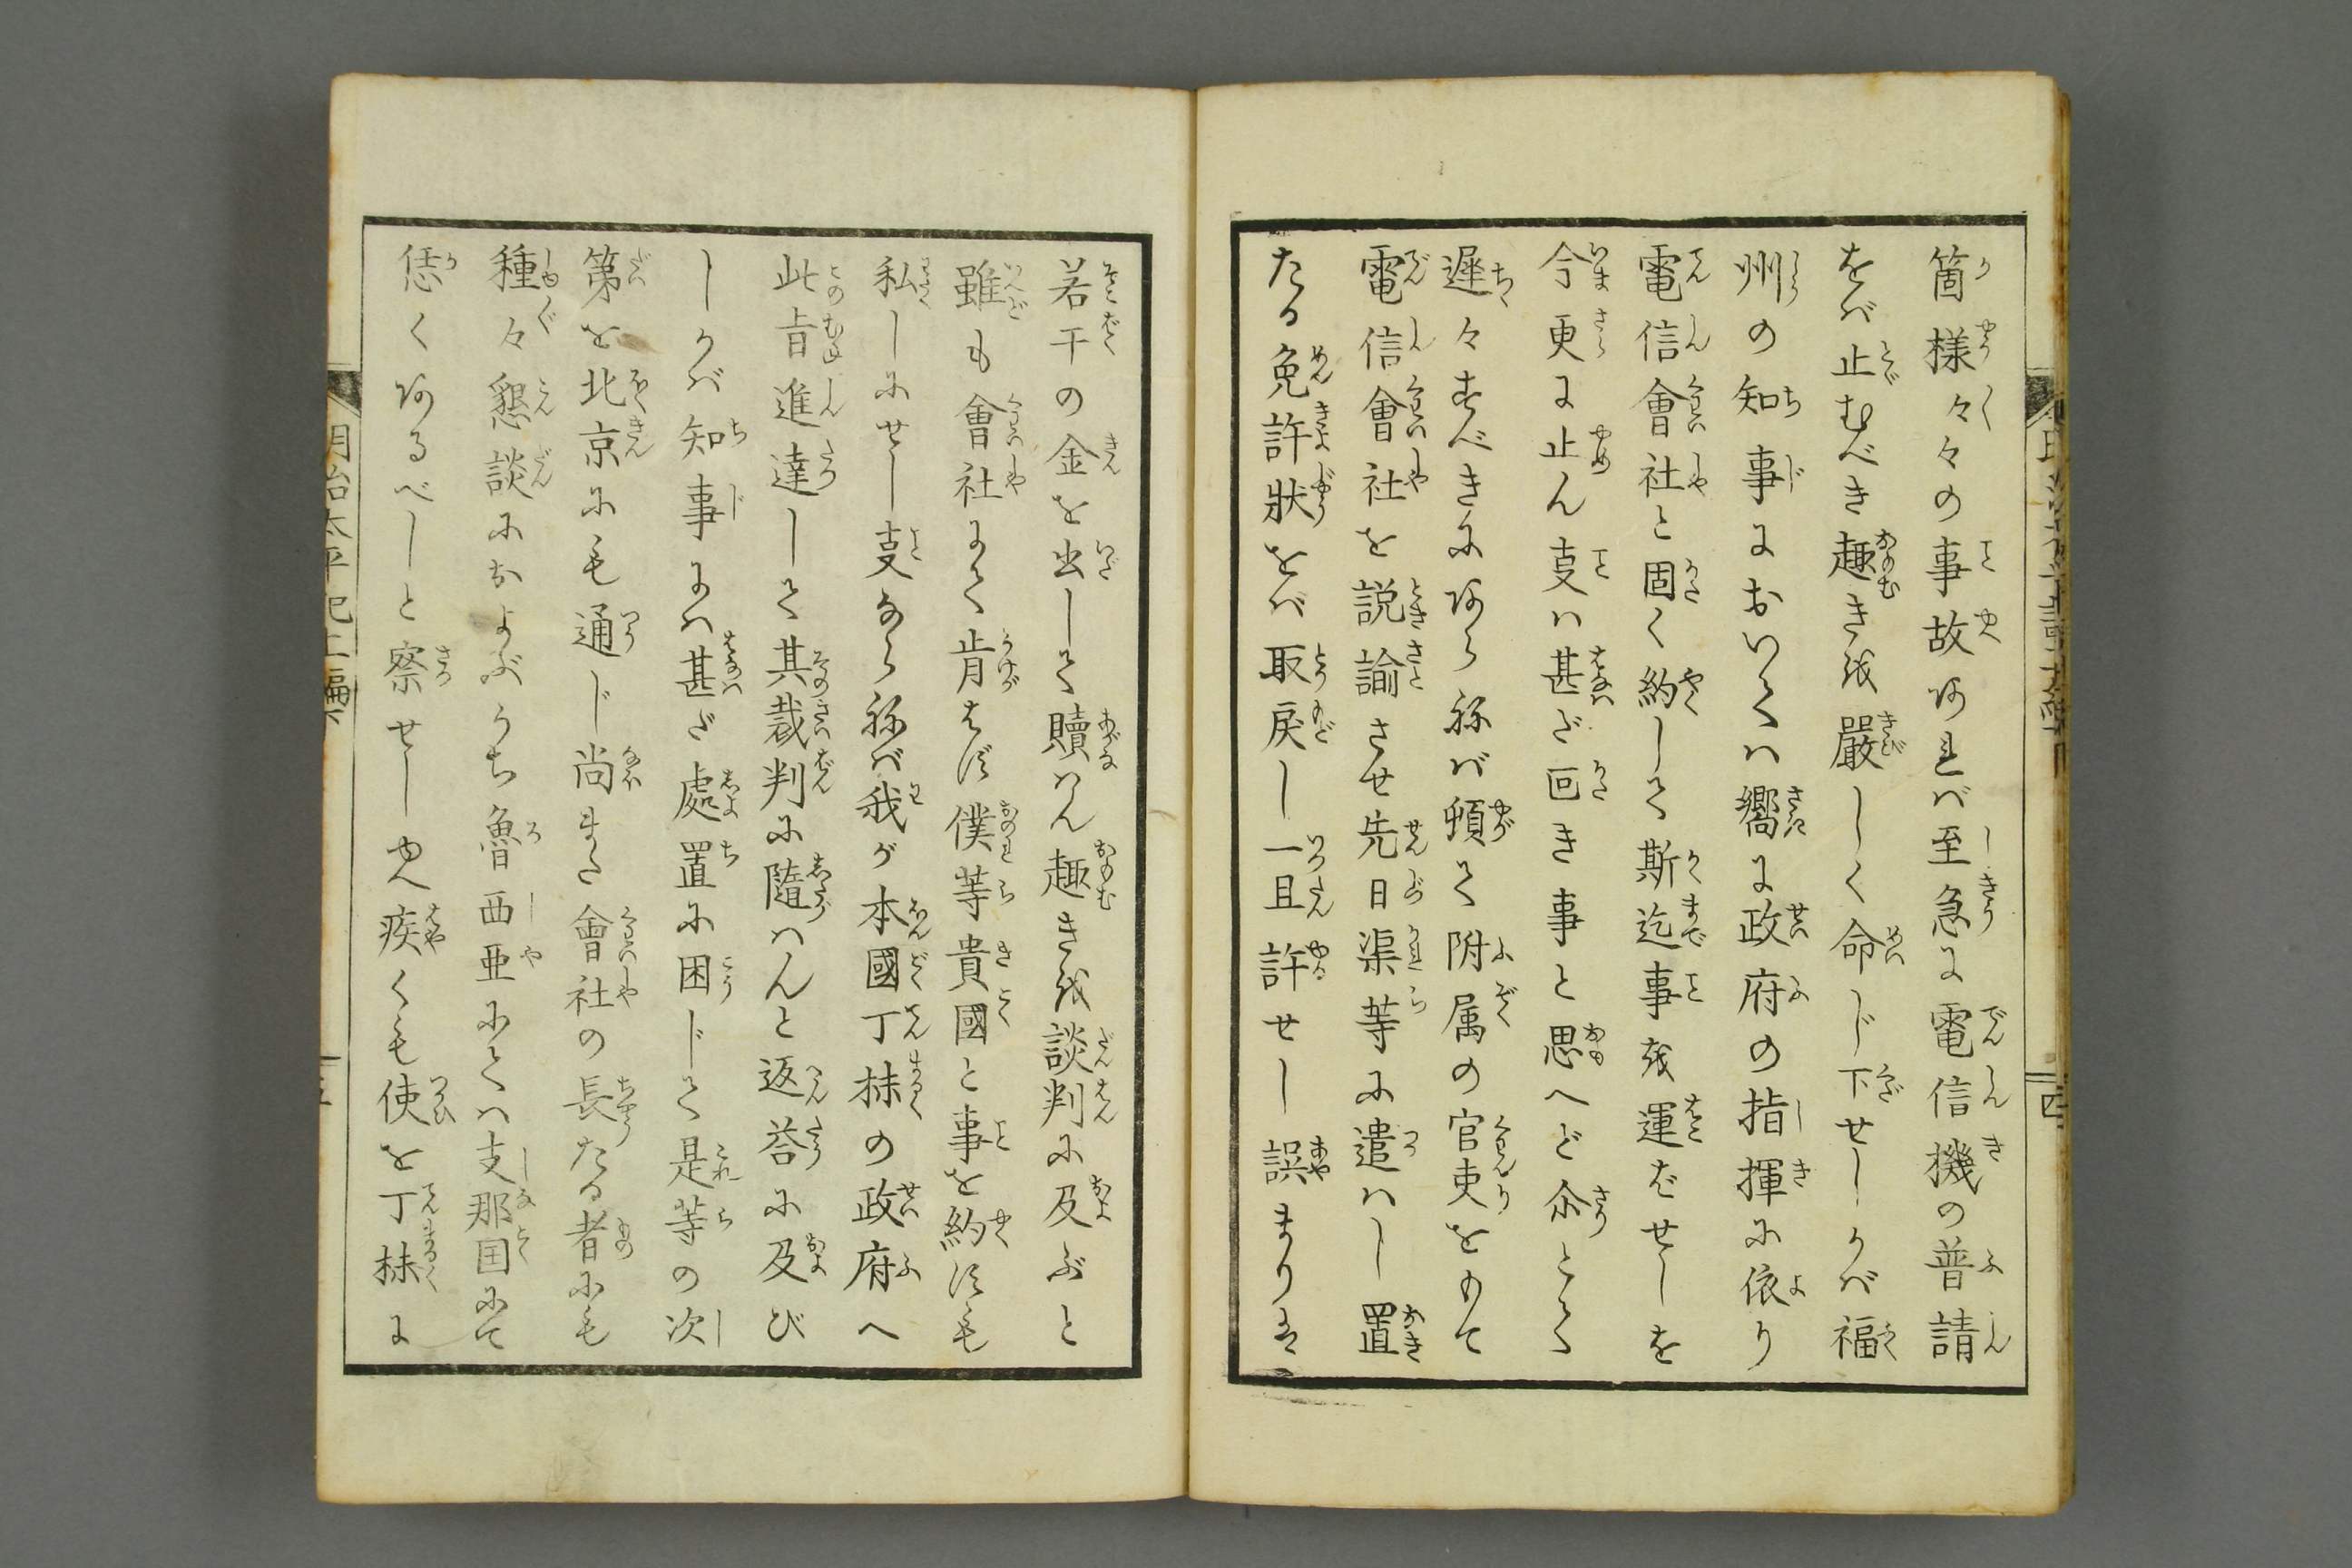 箇様々々の事故あれバ至急に電信機の普請
をバ止むべき趣きを嚴しく命じ下せしかバ福
州の知事においてハ嚮に政府の指揮に依り
電信會社と固く約して斯迄事を運ばせしを
今更に止ん支ハ甚だ叵き事と思へど余とて
遲々すべきにあらねバ頓て附属の官吏をもて
電信會社を説諭させ先日渠等に遣ハし置
たる免許狀をバ取戻し一旦許せし誤まりを
若干の金を出して贖ハん趣きを談判に及ぶと
雖も會社にて肯はず僕等貴國と事を約すも
私しにせし支ならねバ我が本國丁抹の政府へ
此旨進達して其裁判に隨ハんと返荅に及び
しかバ知事にハ甚だ處置に困じて是等の次
第を北京にも通じ尚また會社の長たる者にも
種々懇談におよぶうち魯西亜にてハ支那国にて
恁くあるべしと察せしゆへ疾くも使を丁抹に
明治太平記十二編下